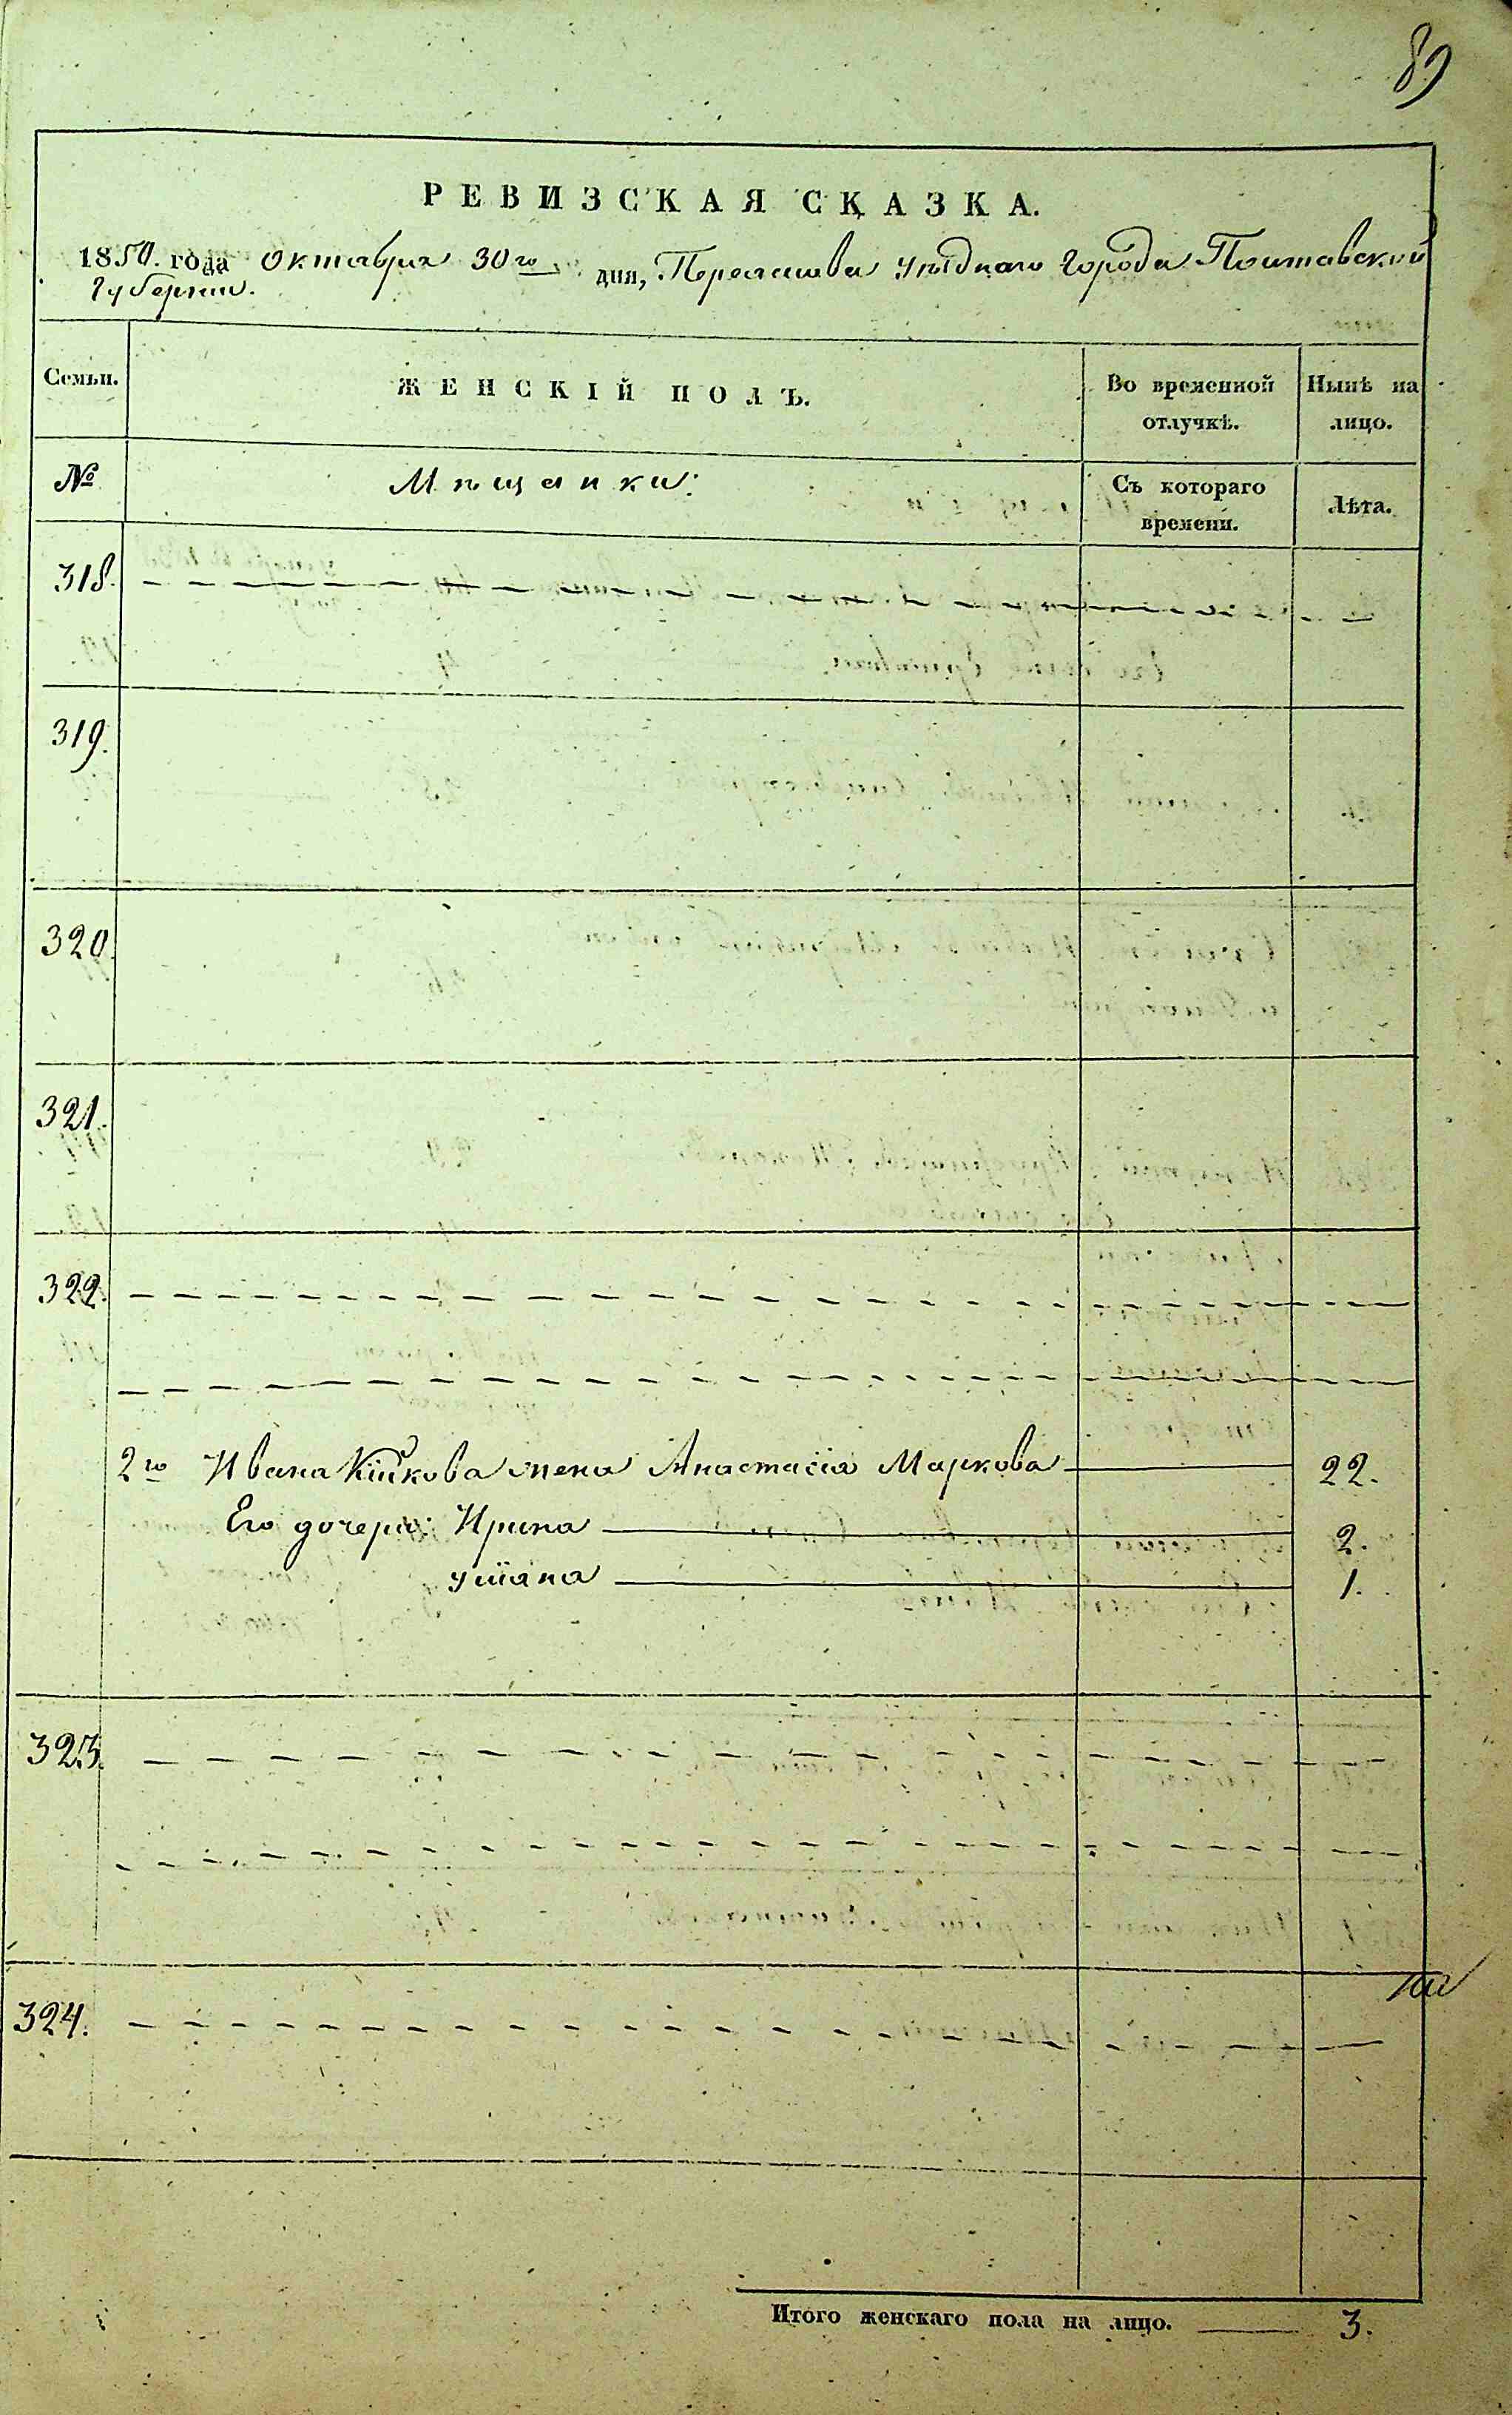 89
РЕВИЗСКАЯ СКАЗКА.
1850. года Октября 30го дня, Переяслова уѣзднаго города Полтавской
Губерніи.
Семьи.
ЖЕНСКІЙ ПОЛЪ.
Во временной отлучкѣ.
Нынѣ на лицо.
№
Мѣщанки:
Съ котораго времени.
Лѣта.
318.
319.
320.
321.
322.
2го Ивана Кійкова жена Анастасія Маркова 22.
Его дочери: Ирина 2.
Уліана 1.
323.
324.
Итого женскаго пола на лицо. 3.